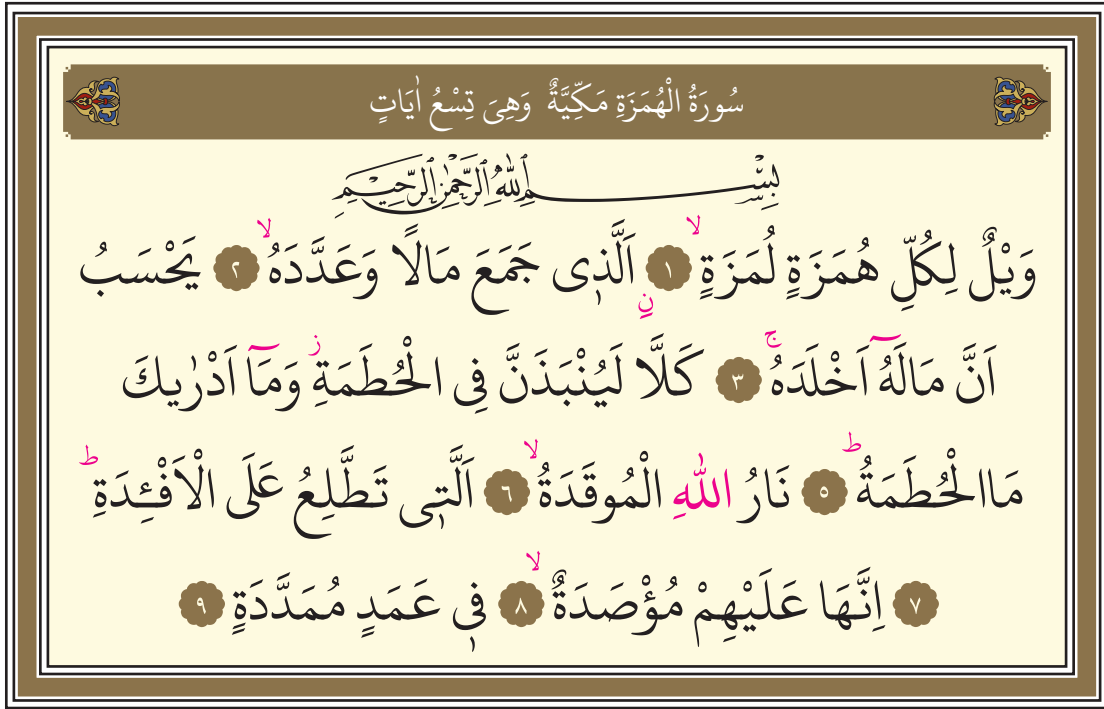 سُورَةُ الْهُمَزَةِ مَكِّيَّةٌ وَهِىَ تِسْعُ اٰيَاتٍ
بِسْمِ اللّٰهِ الرَّحْمٰنِ الرَّحِيمِ
وَيْلٌ لِكُلِّ هُمَزَةٍ لُمَزَةٍۙ ﴿١﴾ اَلَّذ۪ى جَمَعَ مَالًا وَعَدَّدَهُۙ ﴿٢﴾ يَحْسَبُ
اَنَّ مَالَهُٓ اَخْلَدَهُۚ ﴿٣﴾ كَلَّا لَيُنْبَذَنَّ فِى الْحُطَمَةِۘ وَمَٓا اَدْرٰيكَ
مَاالْحُطَمَةُۜ ﴿٥﴾ نَارُ اللّٰهِ الْمُوقَدَةُۙ ﴿٦﴾ اَلَّت۪ى تَطَّلِعُ عَلَى الْاَفْـِٔدَةِۜ
﴿٧﴾ اِنَّهَا عَلَيْهِمْ مُؤْصَدَةٌۙ ﴿٨﴾ ف۪ى عَمَدٍ مُمَدَّدَةٍ ﴿٩﴾